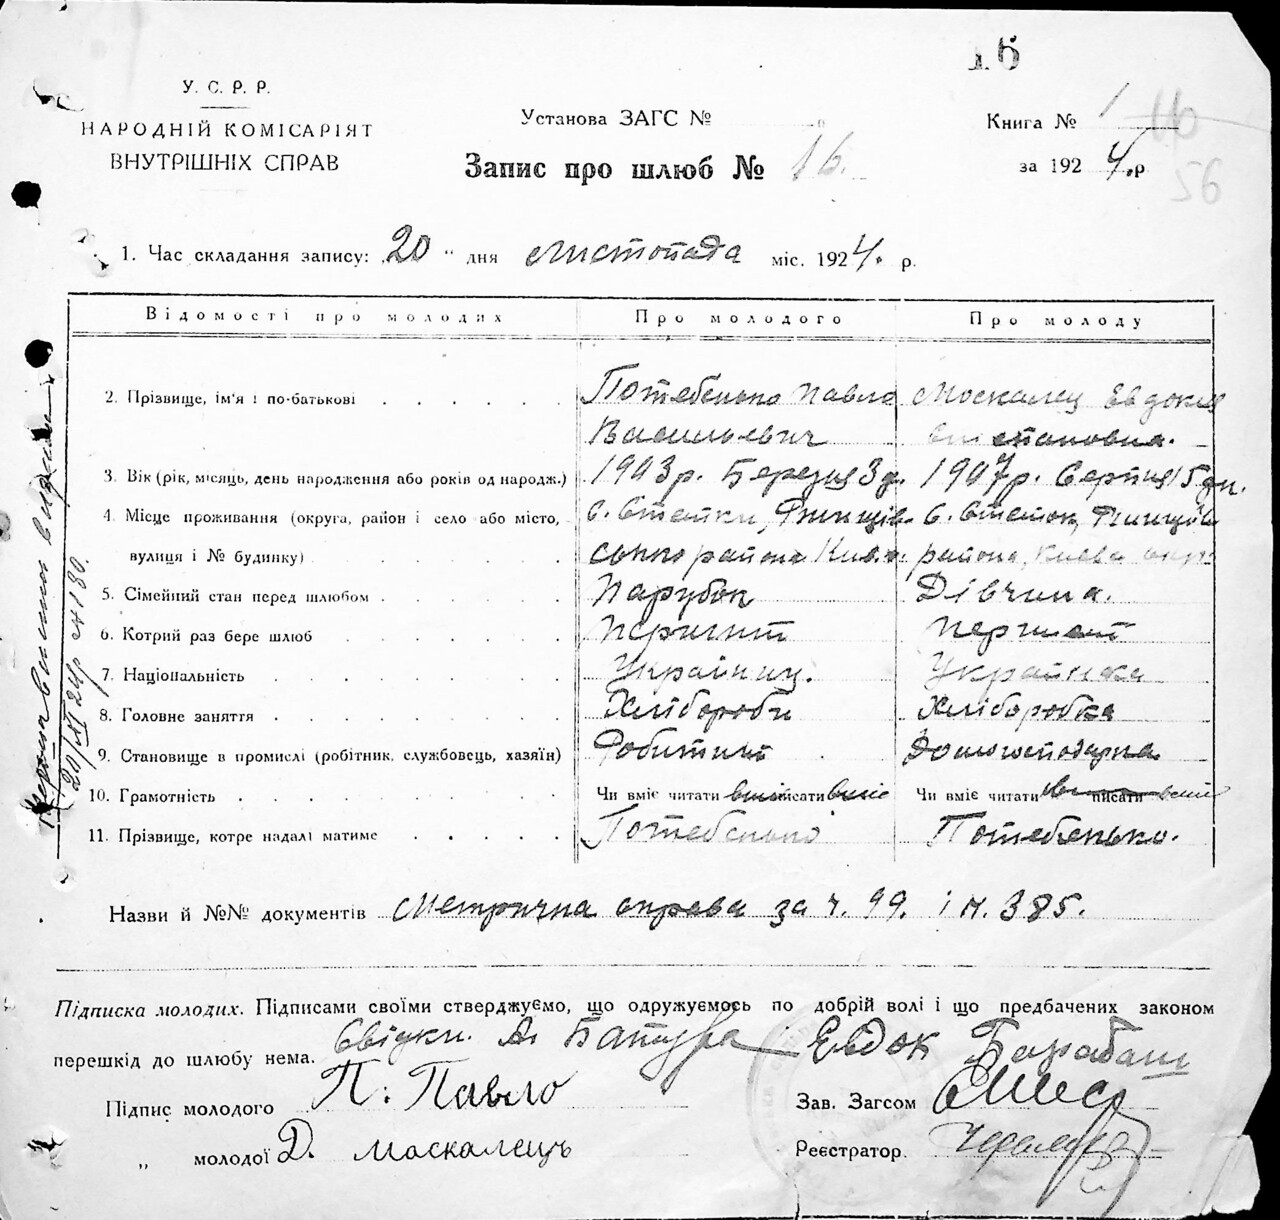 16
У. С. Р. Р.
НАРОДНІЙ КОМІСАРІЯТ
ВНУТРІШНІХ СПРАВ
Установа ЗАГС №
Запис про шлюб № 16.
Книга № 1 16
за 1924.р
56
1. Час складання запису: „20" дня Листопада міс. 1924. р.
Відомості про молодих Про молодого Про молоду
2. Прізвище, ім'я і по-батькові Потебенько Павло Москалец Евдокия
Васильевич Степановна.
3. Вік (рік, місяць, день народження або років од народж.) 1903р. Березня 3д. 1907р. Серпня 15дн.
4. Місце проживання (округа, район і село або місто, с. Стайки, с. Стаек,
вулиця і № будинку) района района, Киева окр.
5. Сімейний стан перед шлюбом Парубок Дівчина.
6. Котрий раз бере шлюб Перший Перший
7. Національність Українец. Українка
8. Головне заняття Хлібороб Хліборобка
9. Становище в промислі (робітник, службовець, хазяїн) Робітник Домогосподарка
10. Грамотність Чи вміє читати вміє писати вміє Чи вміє читати писати
11. Прізвище, котре надалі матиме Потебенько Потебенько.
Назви й №№ документів Метрична справа за ч. 99. і н. 385.
Підписка молодих. Підписами своїми стверджуємо, що одружуємось по добрій волі і що предбачених законом
перешкід до шлюбу нема. Свідки. Евдок Барабаш
Підпис молодого П. Павло Зав. Загсом
„ молодої Д. Москалець Реєстратор.
20/XI 24р № 180.